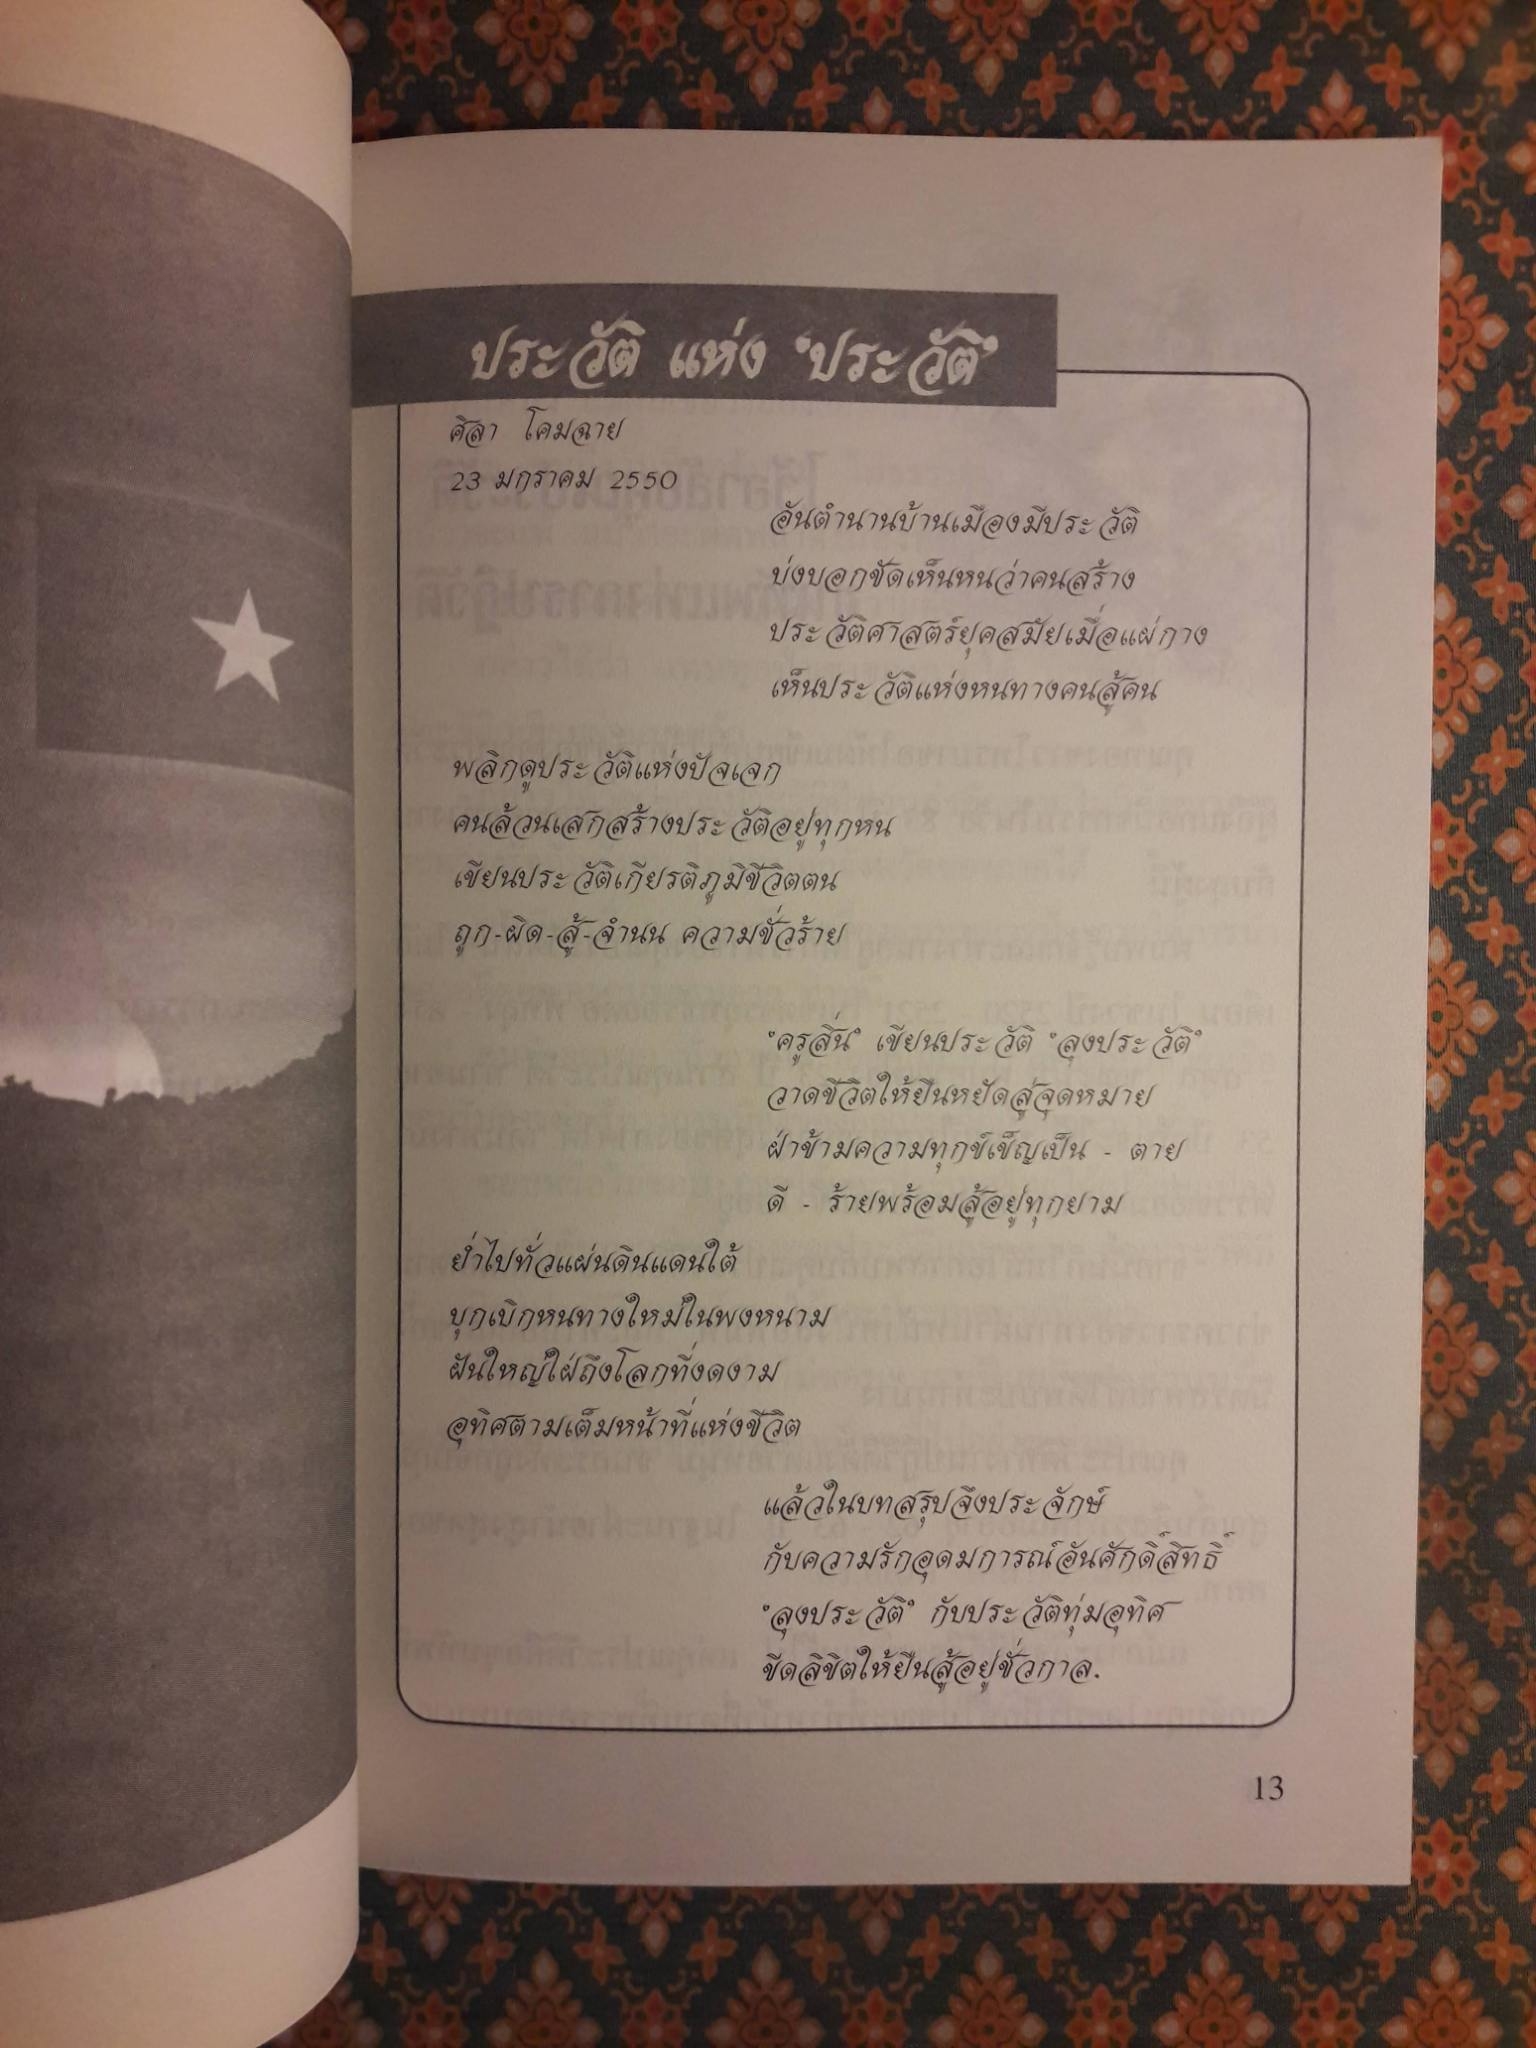 ประวัติ แห่ง "ประวัติ"
ศิลา โคมฉาย
23 มกราคม 2550
อันตำนานบ้านเมืองมีประวัติ
บ่งบอกชัดเห็นหนว่าคนสร้าง
ประวัติศาสตร์ยุคสมัยเมื่อแผ่กาง
เห็นประวัติแห่งหนทางคนสู้คน
พลิกดูประวัติแห่งปัจเจก
คนล้วนเสกสร้างประวัติอยู่ทุกหน
เขียนประวัติเกียรติภูมิชีวิตตน
ถูก-ผิด-สู้-จำนน ความชั่วร้าย
"ครูสิ่น" เขียนประวัติ "ลุงประวัติ"
วาดชีวิตให้ยืนหยัดสู่จุดหมาย
ฝ่าข้ามความทุกข์เข็ญเป็น - ตาย
ดี - ร้ายพร้อมสู้อยู่ทุกยาม
ย่ำไปทั่วแผ่นดินแดนใต้
บุกเบิกหนทางใหม่ในพงหนาม
ฝันใหญ่ใฝ่ถึงโลกที่งดงาม
อุทิศตามเต็มหน้าที่แห่งชีวิต
แล้วในบทสรุปจึงประจักษ์
กับความรักอุดมการณ์อันศักดิ์สิทธิ์
"ลุงประวัติ" กับประวัติทุ่มอุทิศ
ขีดลิขิตให้ยืนสู้อยู่ชั่วกาล.
13